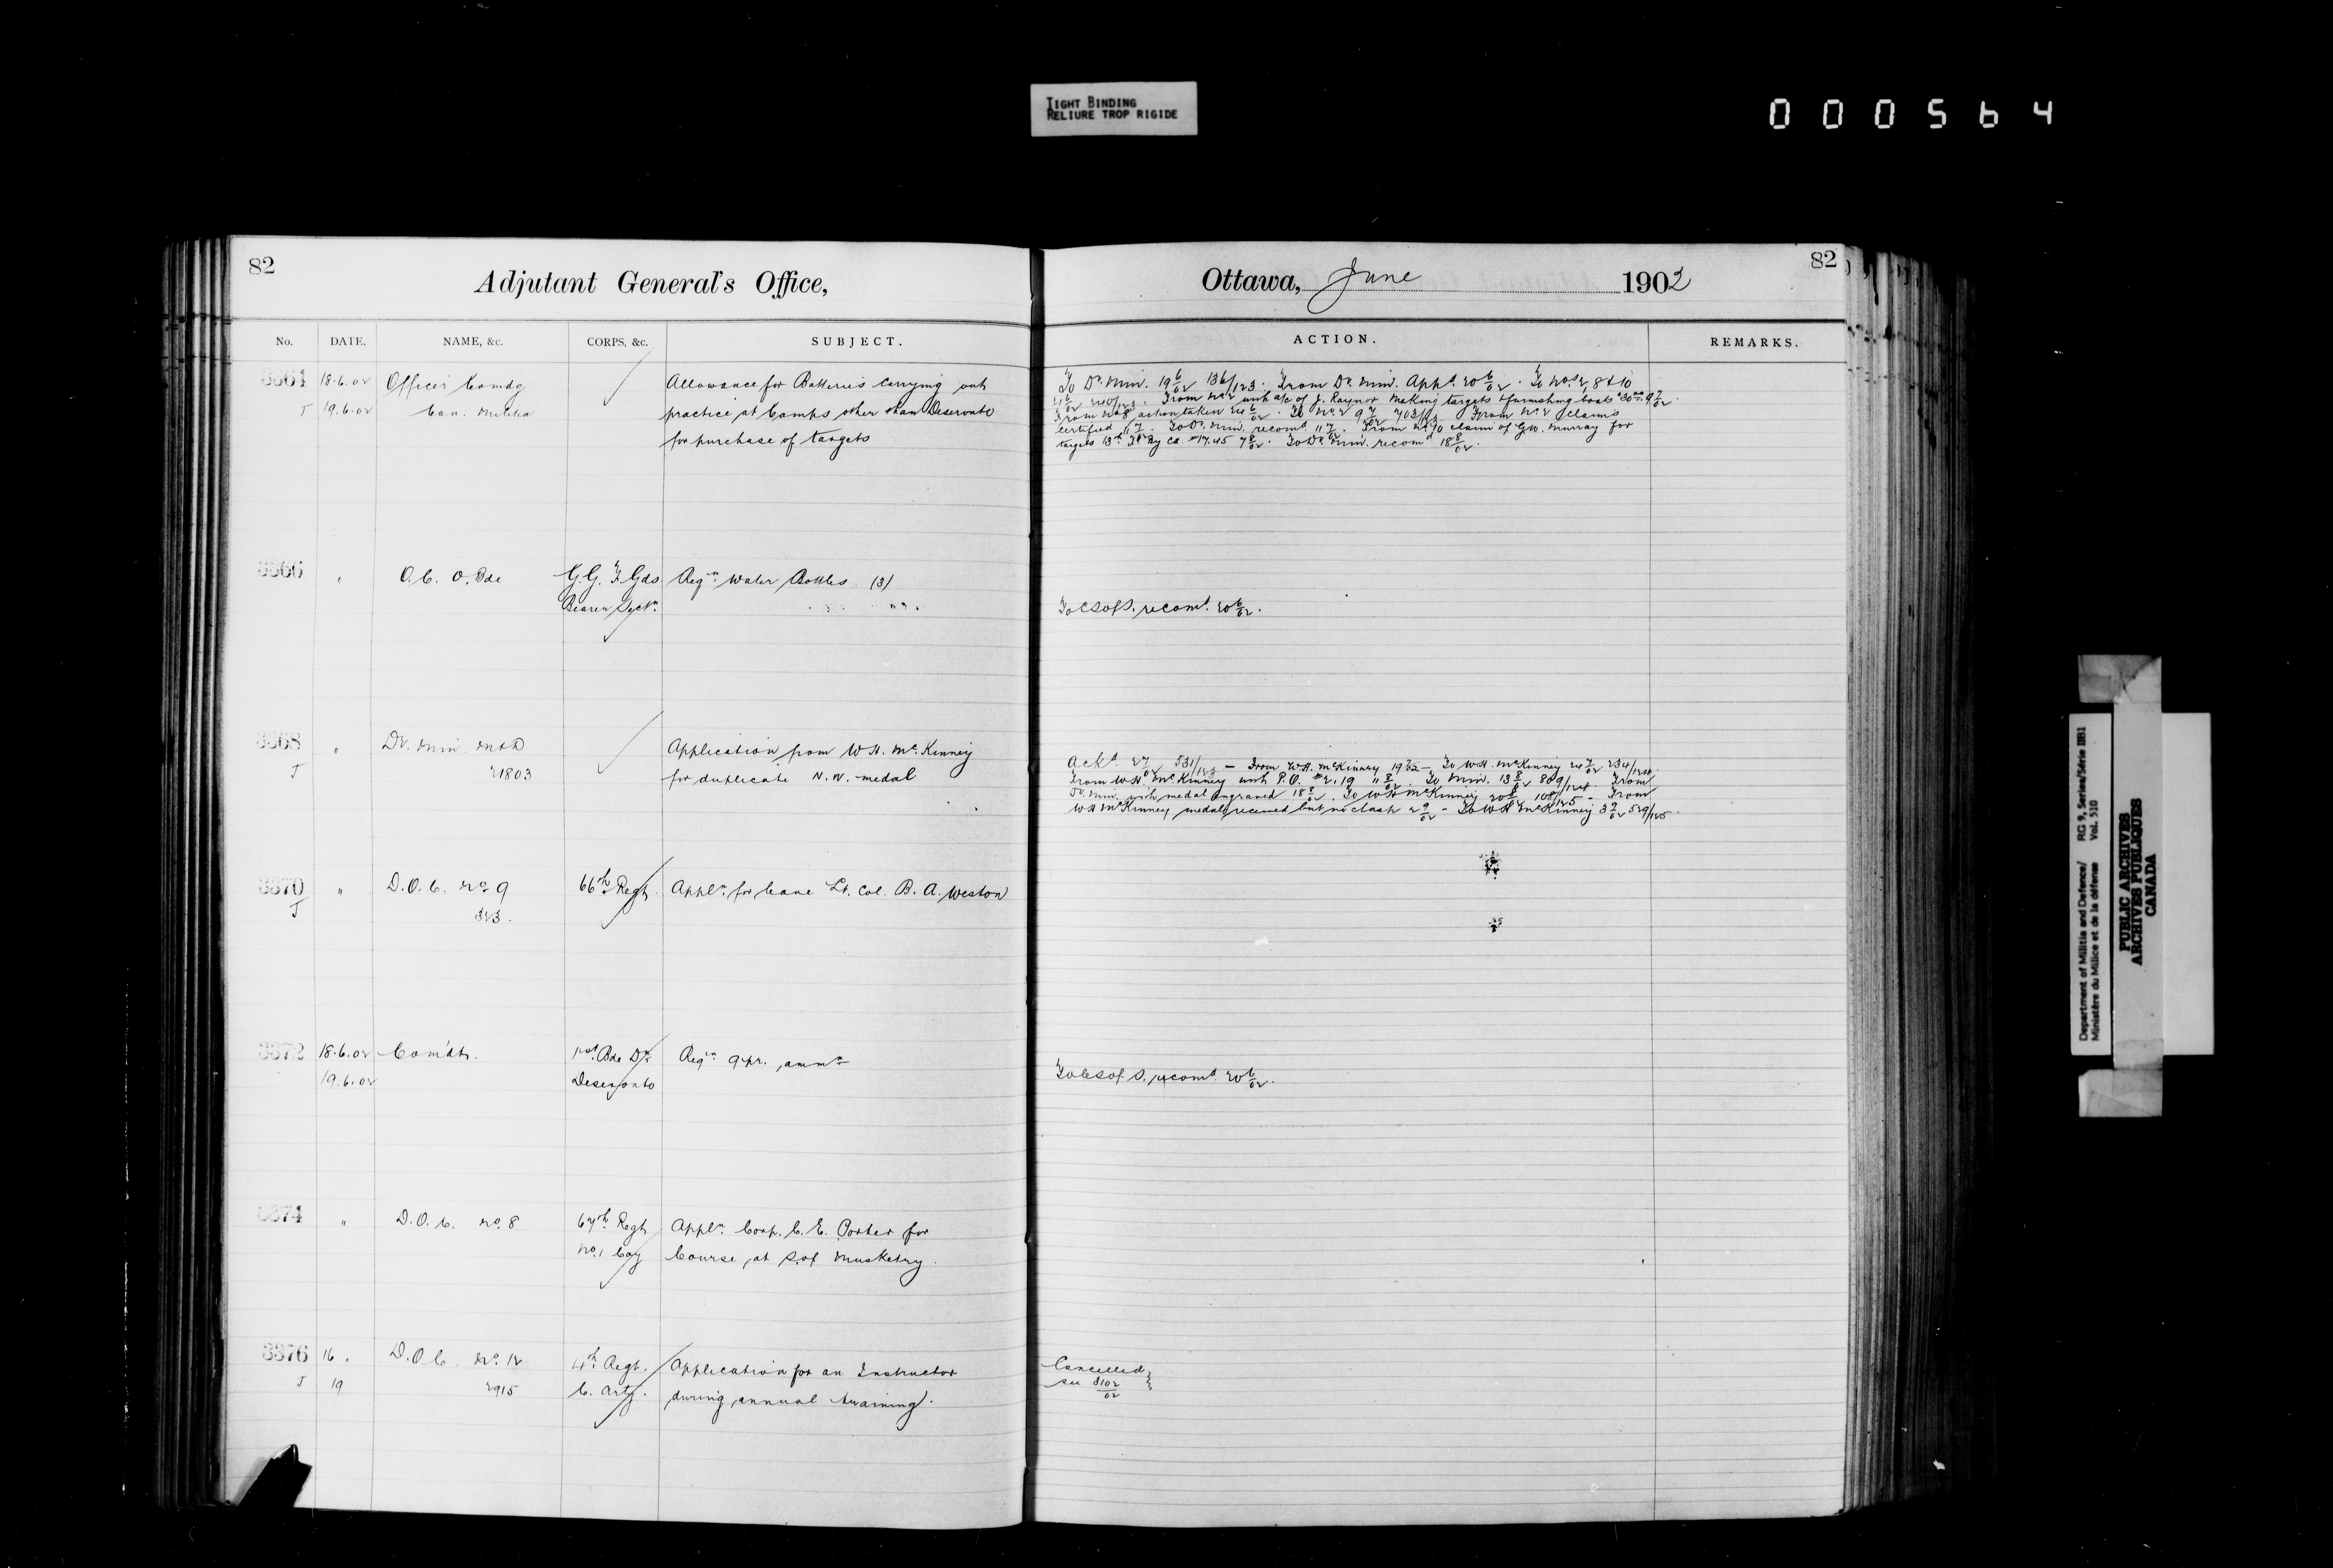 TIGHT BINDING
RELIURE TROP RIGIDE
000564
82
Adjutant General's Office,
No. DATE. NAME, &c. CORPS, &c. SUBJECT.
3364 18.6.02 Officer Comdg Allowance for Batteries carrying out
J 19.6.02 Can. Militia practice at Camps other than Deseronto
for purchase of targets
3366 " O.C. O. Bde G.G. F. Gds. Reqn. Water Bottles (3)
Bearer Sectn.
3368 " Dy. Min. M&D Application from W.H. McKinney
J 21803 for duplicate N.W. medal
3370 " D.O.C. No. 9 66th Regt. Appln. for leave Lt. Col. B. A. Weston
J 323.
3372 18.6.02 Com'dt. 1st Bde Dn. Reqn. 9 pr. ammn.
19.6.02 Deseronto
3374 " D.O.C. No. 8 67th Regt. Appln. Corp. C. E. Porter for
No. 1 Coy Course at S. of Musketry.
3376 16 " D.O.C. No. 12 4th Regt. Application for an Instructor
J 19 2915 C. Arty. during annual training.
82
Ottawa, June 1902
ACTION. REMARKS.
To Dy. Min. 19 6/02 136/123. From Dy. Min. Appd. 20 6/02. To Nos. 2, 8 & 10
21 6/02 240/123. From No. 2 with a/c of J. Raynor making targets & furnishing boats $30.00 9 7/02.
From No. 8 action taken 24 6/02. To No. 2 9 7/02 703/123. From No. 2 claims
certified 11 7/02. To Dy. Min. recomd. 11 7/02. From No. 10 claim of G.W. Murray for
targets 13th Fd By CA $17.45 7 8/02. To Dy. Min. recomd 18 8/02.
To C.S. of S. recomd. 20 6/02.
Ackd. 27 531/123 – From W.H. McKinney 19 – To W.H. McKinney 24 7/02 234/124.
From W.H. McKinney with P.O. $2.19 11 8/02. To Min. 13 8/02 809/124. From
Dy. Min. with medal engraved 18 8/02. To W H McKinney 20 8/02 108/125 – From
W H McKinney medal received but no clasp 2 9/02 – To W H McKinney 3 9/02 529/125.
To C.S. of S. recomd. 20 6/02.
Cancelled
see 3102/02
Department of Militia and Defence/ RG 9, Series/Série IIB1
Ministère du Milice et de la défense Vol. 510
PUBLIC ARCHIVES
ARCHIVES PUBLIQUES
CANADA